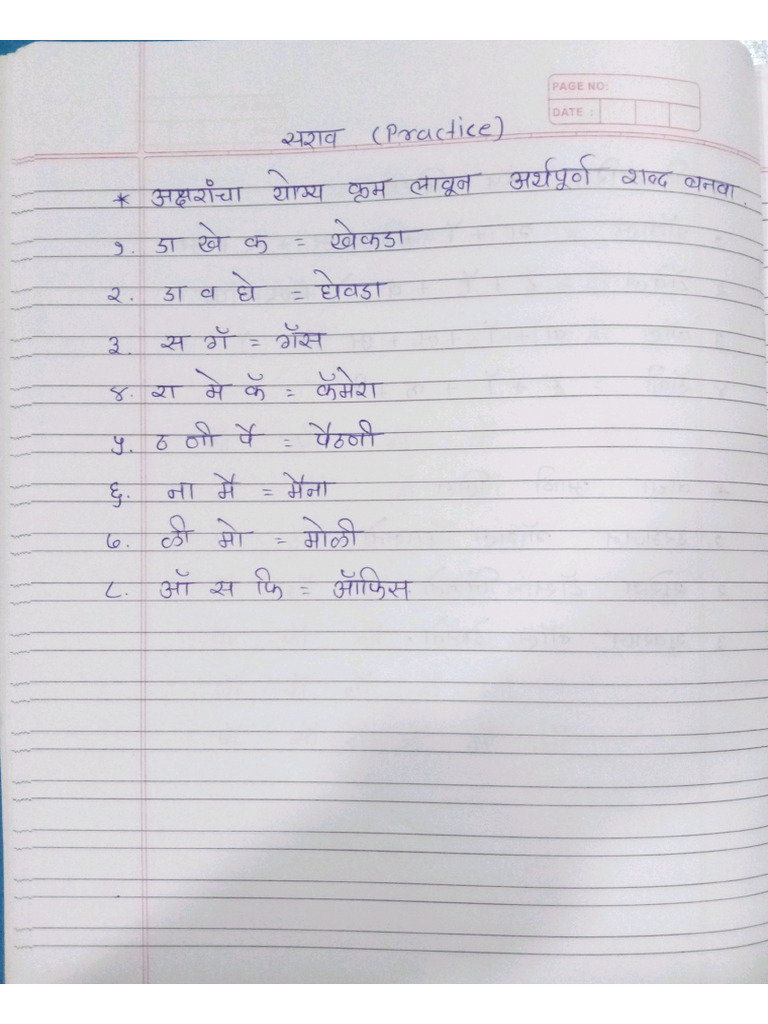 PAGE NO:
DATE :
सराव (Practice)
* अक्षरांचा योग्य क्रम लावून अर्थपूर्ण शब्द बनवा.
१. डा खे क = खेकडा
२. डा व घे = घेवडा
३. स गॅ = गॅस
४. रा मे कॅ = कॅमेरा
५. ठ णी पै = पैठणी
६. ना मै = मैना
७. ळी मो = मोळी
८. ऑ स फि = ऑफिस